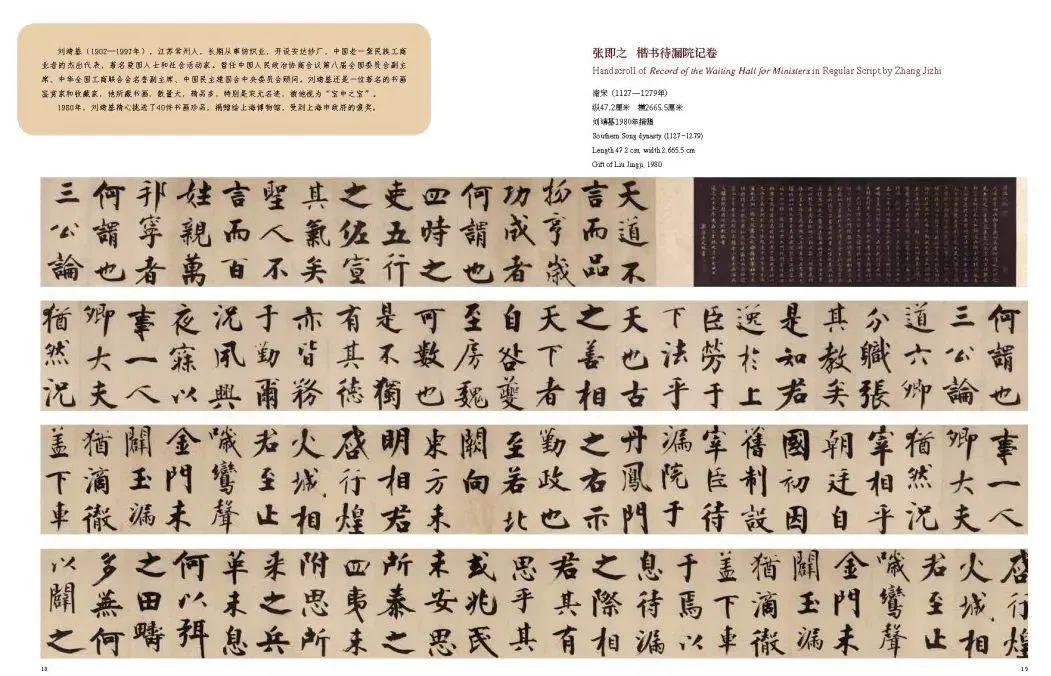 刘靖基（1902—1997年），江苏常州人，长期从事纺织业，开设安达纱厂，中国老一辈民族工商
业者的杰出代表，著名爱国人士和社会活动家。曾任中国人民政治协商会议第八届全国委员会副主
席、中华全国工商联合会名誉副主席、中国民主建国会中央委员会顾问。刘靖基还是一位著名的书画
鉴赏家和收藏家，他所藏书画，数量大，精品多，特别是宋元名迹，被他视为“宝中之宝”。
1980年，刘靖基精心挑选了40件书画珍品，捐赠给上海博物馆，受到上海市政府的褒奖。
张即之 楷书待漏院记卷
Handscroll of Record of the Waiting Hall for Ministers in Regular Script by Zhang Jizhi
南宋（1127—1279年）
纵47.2厘米 横2665.5厘米
刘靖基1980年捐赠
Southern Song dynasty (1127-1279)
Length 47.2 cm, width 2,665.5 cm
Gift of Liu Jingji, 1980
天道不
言而品
物亨歲
功成者
何謂也
四時之
吏五行
之佐宣
其氣矣
聖人不
言而百
姓親萬
邦寧者
何謂也
三公論
何謂也
三公論
道六卿
分職張
其教矣
是知君
逸於上
臣勞于
下法乎
天也古
之善相
天下者
自咎夔
至房魏
可數也
是不獨
有其德
亦皆務
于勤爾
況夙興
夜寐以
事一人
卿大夫
猶然況
事一人
卿大夫
猶然況
宰相乎
朝廷自
國初因
舊制設
宰臣待
漏院于
丹鳳門
之右示
勤政也
至若北
闕向
東方未
明相君
啓行煌
火城相
君至止
噦鸞聲
金門未
闢玉漏
猶滴徹
盖下車
啓行煌
火城相
君至止
噦鸞聲
金門未
闢玉漏
猶滴徹
盖下車
于焉以
息待漏
之際相
君其有
思乎其
或兆民
未安思
所泰之
四夷未
附思所
来之兵
革未息
何以弭
之田疇
多蕪何
以闢之
18
19